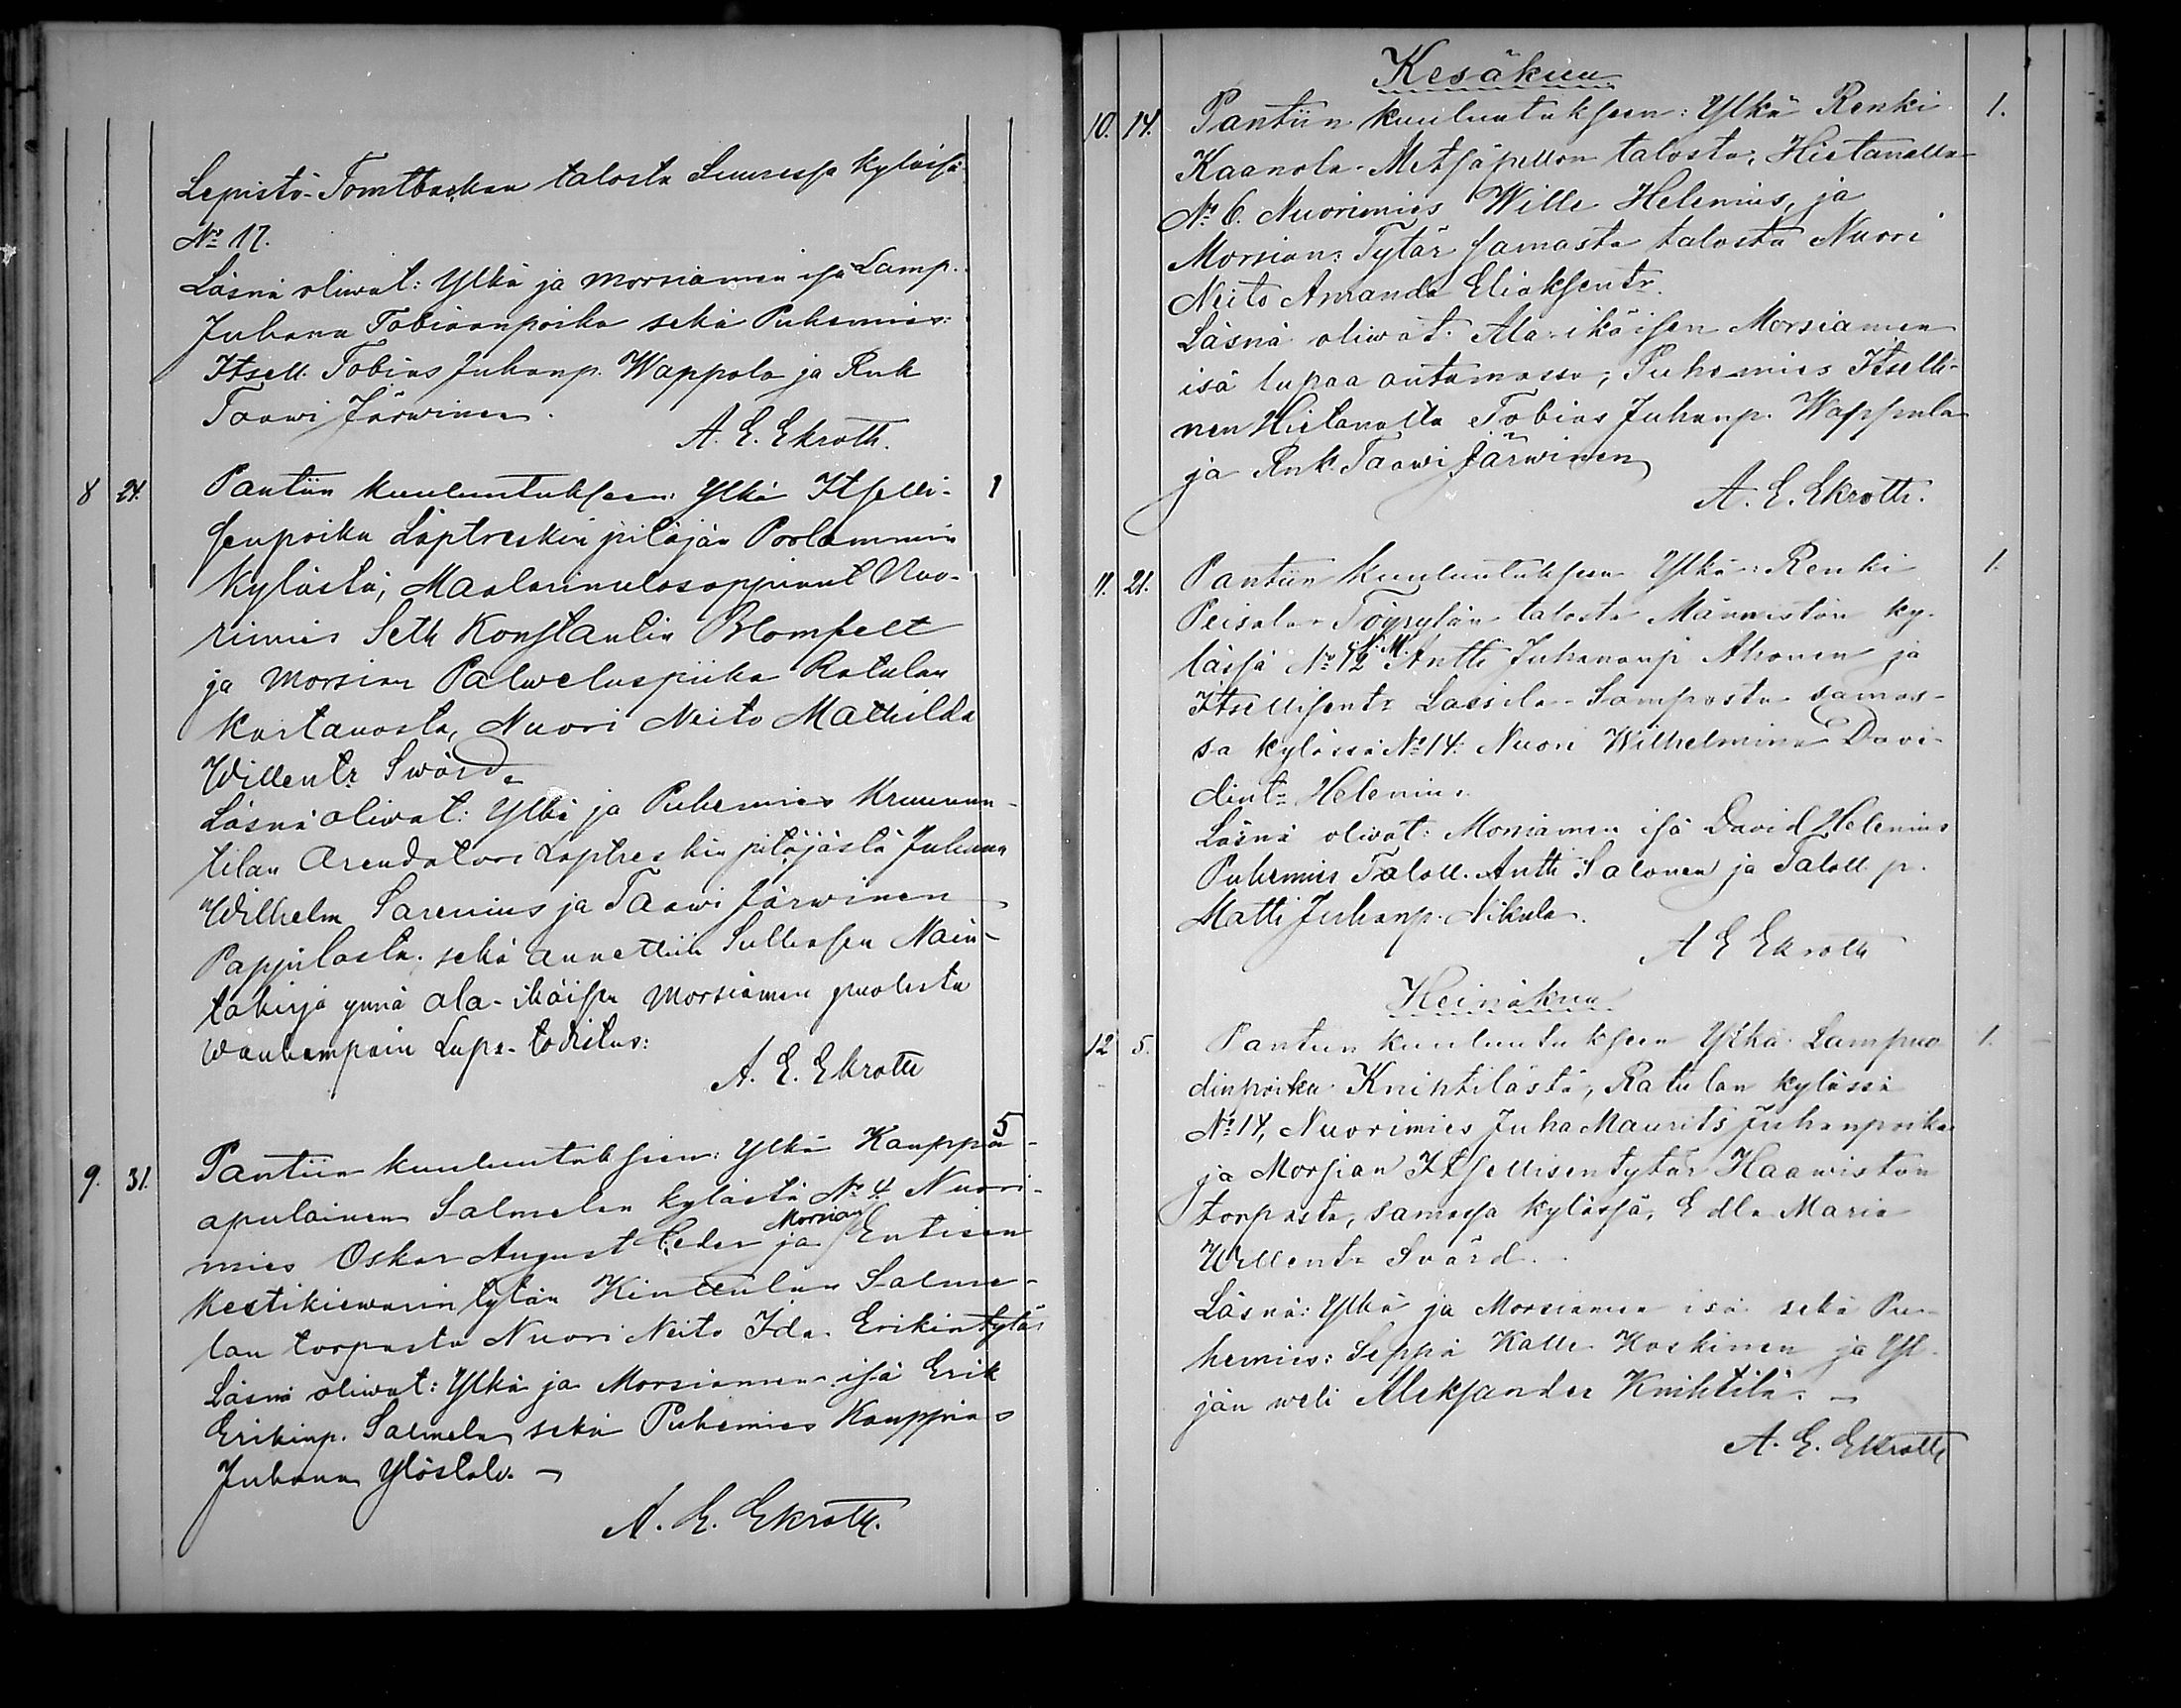 Lepistö-Tomtbackan talosta Suuressa kylässä
No 17.
Läsnä oliwat: Ylkä ja morsiamen isä Lamp.
Juhana Tobiaanpoika sekä Puhemies:
Itsell. Tobias Juhanp. Wappola ja Rnk
Taawi Järwinen.
A. E. Ekroth.
8 24. Pantiin kuuluutukseen: Ylkä Itselli- 1
senpoika Läptreskin pitäjän Porlammin
kylästä, Maalarinulosoppinut Nuo-
rimies Seth Konstantin Blomfelt
ja morsian Palweluspiika Ratulan
kartanosta, Nuori Neito Mathilda
Willentr Swärd
Läsnä oliwat: Ylkä ja Puhemies Kruunun-
tilan Arendatori Läptreskin pitäjästä Juhana
Wilhelm Sarenius ja Taawi Järwinen
Pappilasta. sekä annettiin Sulhasen Nain-
takirja ynnä ala-ikäisen morsiamen puolesta
wanhempain Lupa-todistus:
A. E. Ekroth
9. 31. Pantiin kuuluutukseen: Ylkä Kauppa- 5
apulainen Salmelan kylästä No 4 Nuori-
mies Oskar August Ceder ja Morsian Entisen
Kestikiewarin tytär Kinttulan Salme-
lan torpasta Nuori Neito Ida Erikintytär
Läsnä oliwat: Ylkä ja Morsiamen isä Erik
Erikinp. Salmela sekä Puhemies Kauppias
Juhana Ylöstalo. –
A. E. Ekroth.
Kesäkuu
10. 14. Pantiin kuuluutukseen: Ylkä Renki 1.
Kaanola-Metsäpellon talosta, Hietanalla
No 6. Nuorimies Wille Helenius, ja
Morsian: Tytär samasta talosta Nuori
Neito Amanda Eliaksentr.
Läsnä oliwat. Ala-ikäisen Morsiamen
isä lupaa antamassa; Puhemies Itselli-
nen Hietanalta Tobias Juhanp. Wappula
ja Rnk. Taawi Järwinen
A. E. Ekroth.
11. 21. Pantiin kuuluutukseen Ylkä: Renki 1.
Peisala-Töyrylän talosta Männistön ky-
lässä No 12 N. M. Antti Juhananp Ahonen ja
Itsellisentr Lassila-Sampasta samas-
sa kylässä No 14: Nuori Wilhelmina Davi-
dintr Helenius.
Läsnä oliwat: Morsiamen isä David Helenius
Puhemies Taloll. Antti Salonen ja Taloll p.
Matti Juhanp. Nikula.
A E Ekroth
Heinäkuu
12 5. Pantiin kuuluutukseen Ylkä Lampuo 1.
dinpoika Knihtilästä, Ratulan kylässä
No 14, Nuorimies Juha Maurits Juhanpoika
ja Morsian Itsellisentytär Haawiston
torpasta, samassa kylässä, Edla Maria
Willentr Svärd.
Läsnä: Ylkä ja Morsiamen isä sekä Pu-
hemies: Seppä Kalle Koskinen ja Yl-
jän weli Aleksander Knihtilä. –
A. E. Ekroth